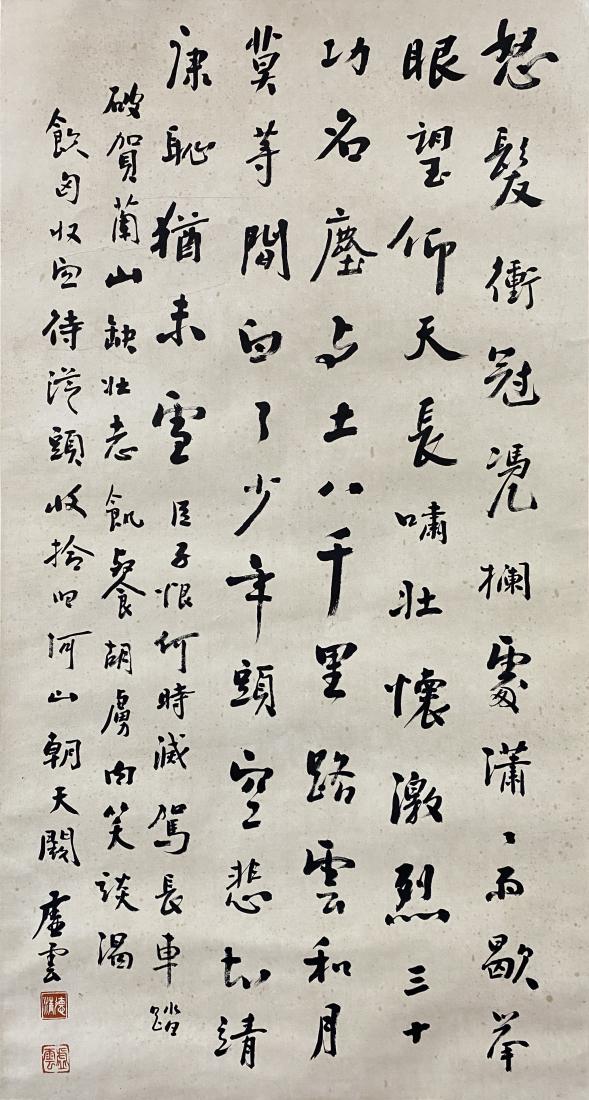 怒髮衝冠憑欄處瀟〻雨歇举
眼望仰天長嘯壯懷激烈三十
功名塵与土八千里路雲和月
莫等間白了少年頭空悲切靖
康恥猶未雪臣子恨何時滅駕長車踏
破賀蘭山缺壯志飢餐胡虜肉笑談渴
飲匈奴血待從頭收拾旧河山朝天闕 虛雲
德清
虛雲